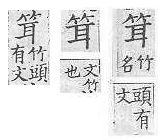 䇯
竹頭
有文
䇯
文竹
也
䇯
竹
名
頭有
文